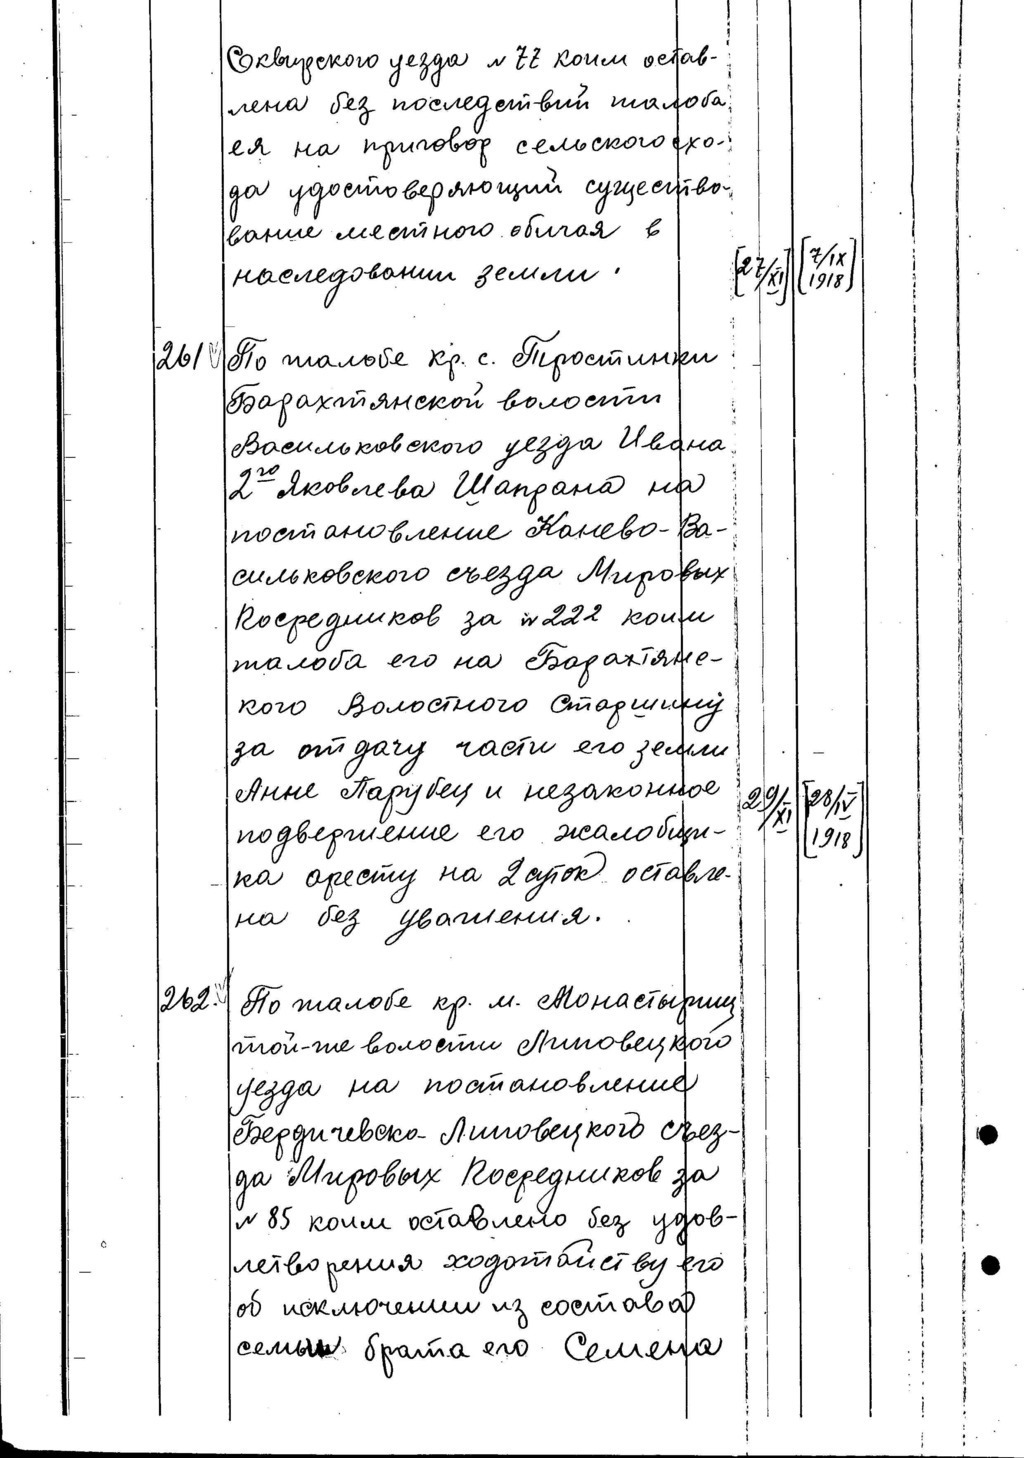 Сквирского уезда № 77 коим остав-
лена без последствий жалоба
ея на приговор сельского схо-
да удостоверяющий существо-
вание местного обычая в
наследовании земли.
[27/XI] [7/IX 1918]
261 По жалобе кр. с. Тростинки
Барахтянской волости
Васильковского уезда Ивана
2го Яковлева Шапрана на
постановление Канево-Ва-
сильковского съезда Мировых
Посредников за № 222 коим
жалоба его на Барахтянс-
кого Волостного Старшину
за отдачу части его земли
Анне Парубец и незаконное
29/XI [28/IV 1918]
подвержение его жалобщи-
ка аресту на 2 суток оставле-
на без уважения.
262. По жалобе кр. м. Монастырищ
той-же волости Липовецкого
уезда на постановление
Бердичевско-Липовецкого съез-
да Мировых Посредников за
№ 85 коим оставлено без удов-
летворения ходатайству его
об исключении из состава
семьи брата его Семена